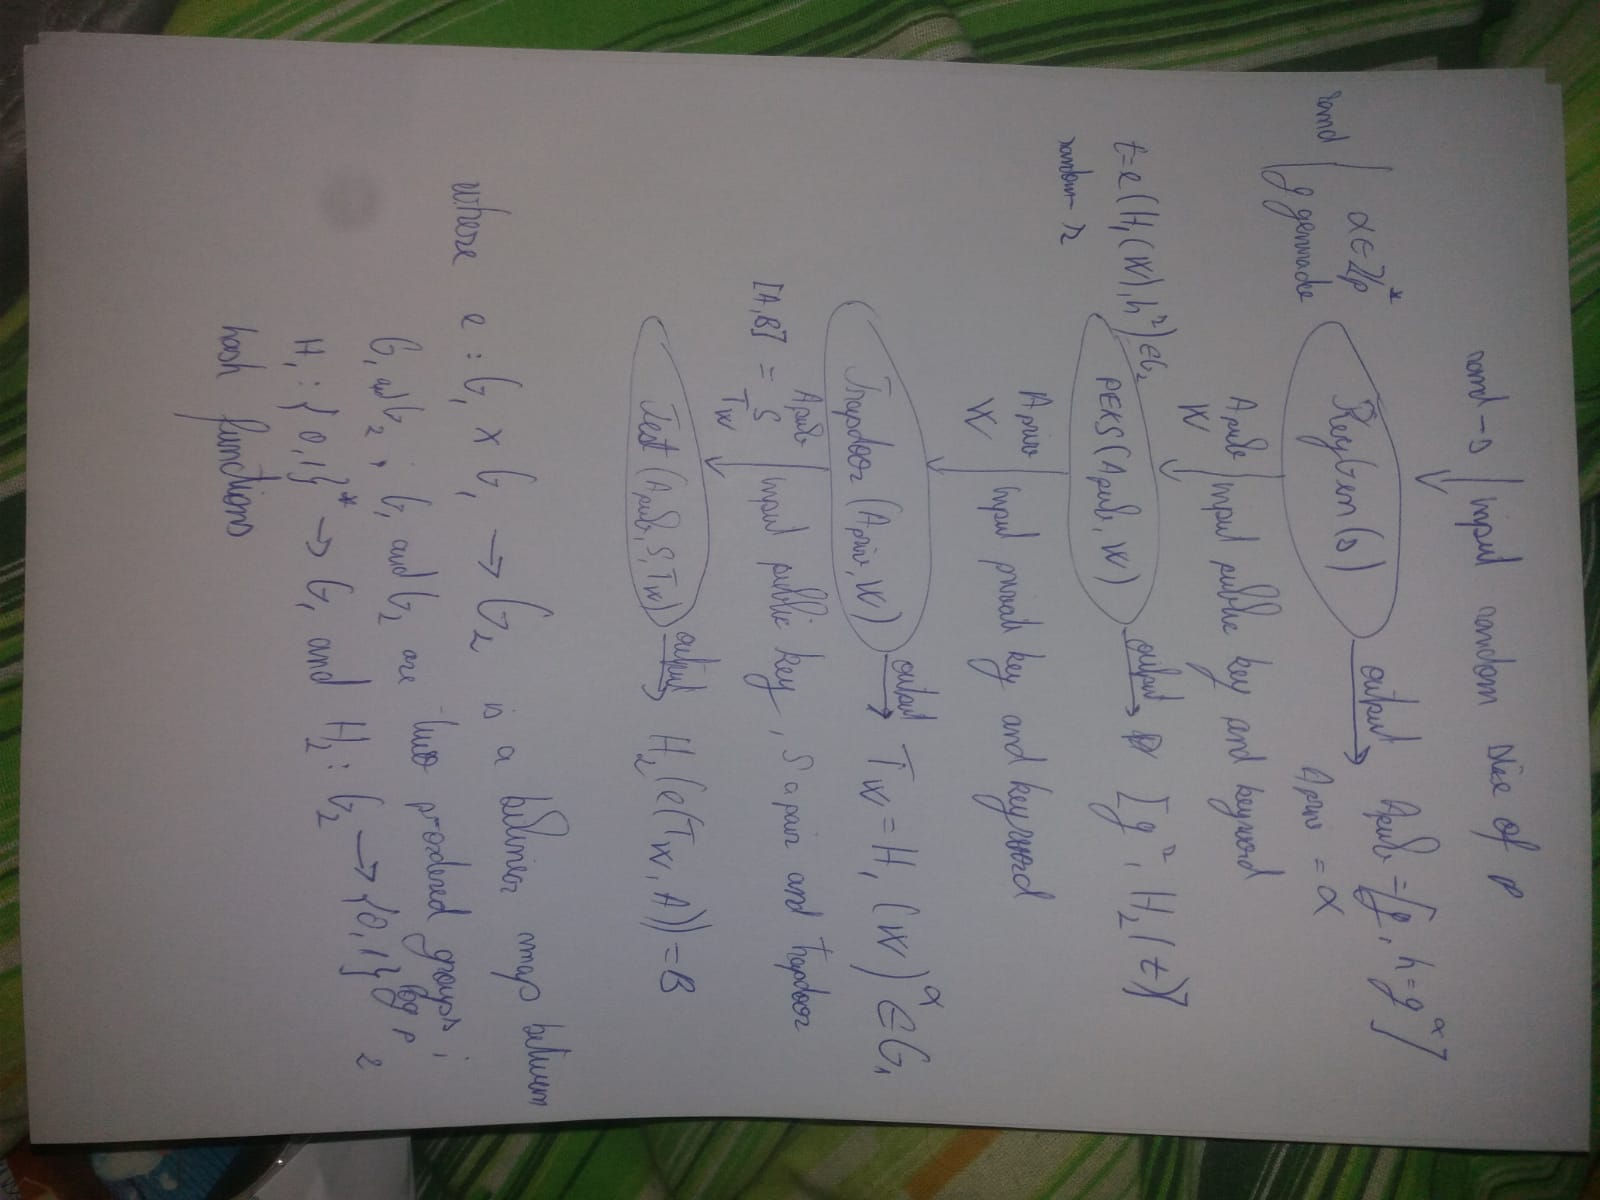 rand → s | input random size of p
rand | α ∈ Zp*
g generator
KeyGen(s) output → Apub = [g, h = g^α]
Apriv = α
Apub
W | input public key and keyword
t = e(H₁(W), h^r) ∈ G₂
random r
PEKS(Apub, W) output → [g^r, H₂(t)]
Apriv
W | input private key and keyword
Trapdoor(Apriv, W) output → Tw = H₁(W)^α ∈ G₁
Apub
[A,B] = S
Tw | input public key, S a pair and trapdoor
Test(Apub, S, Tw) output → H₂(e(Tw, A)) = B
where e : G₁ × G₁ → G₂ is a bilinear map between
G₁ and G₂ ; G₁ and G₂ are two p-ordered groups ;
H₁ : {0,1}* → G₁ and H₂ : G₂ → {0,1}^log p 2
hash functions